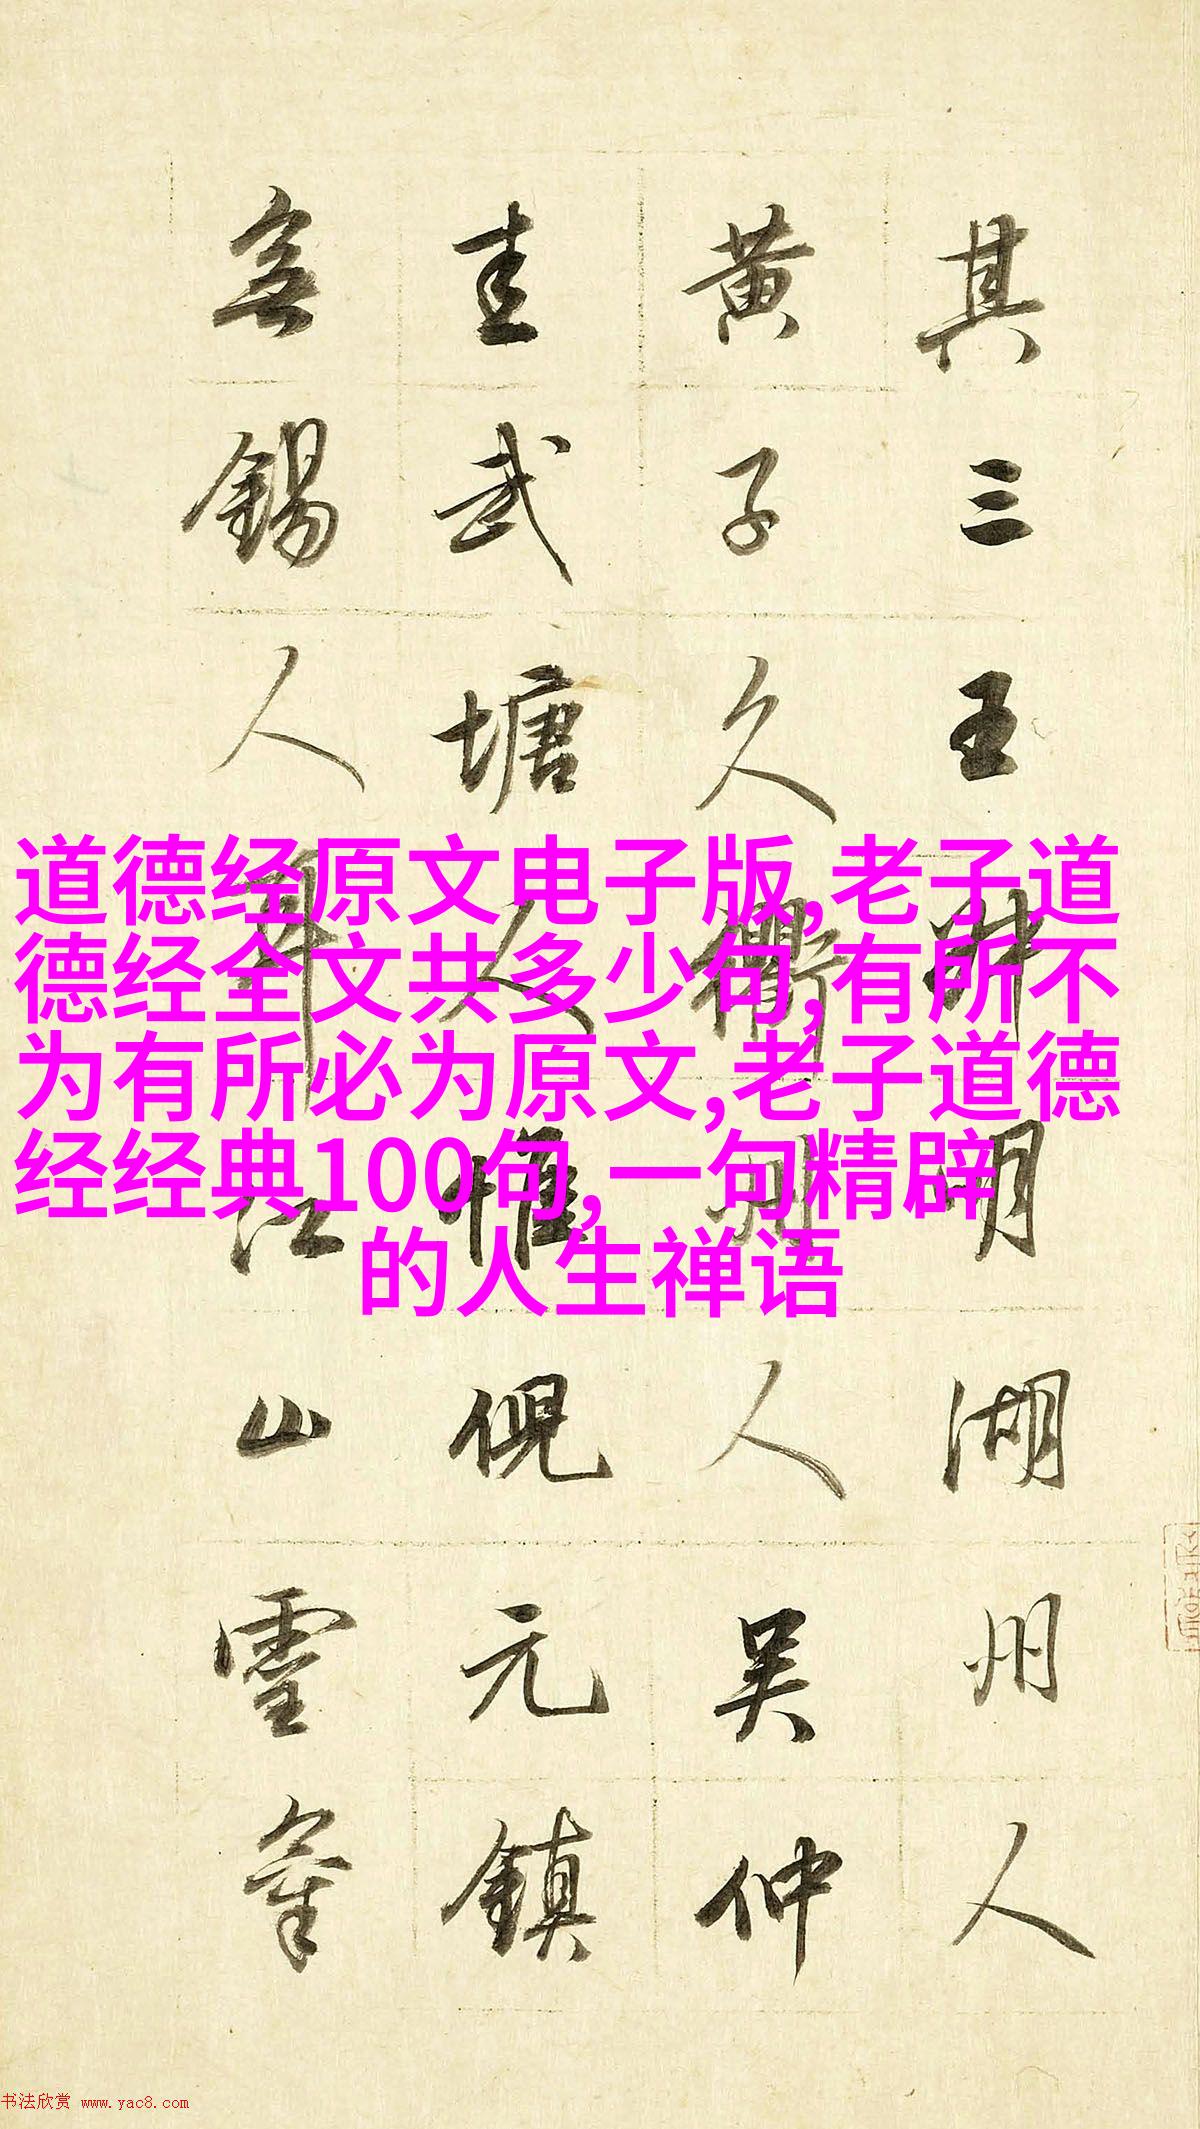 其三王叔明湖州人
黄子久衢州人吴仲
圭武塘人惟倪元鎮
無錫人耳江山靈氣
道德经原文电子版,老子道
德经全文共多少句,有所不
为有所必为原文,老子道德
经经典100句,一句精辟
的人生禅语
书法欣赏 www.yac8.com